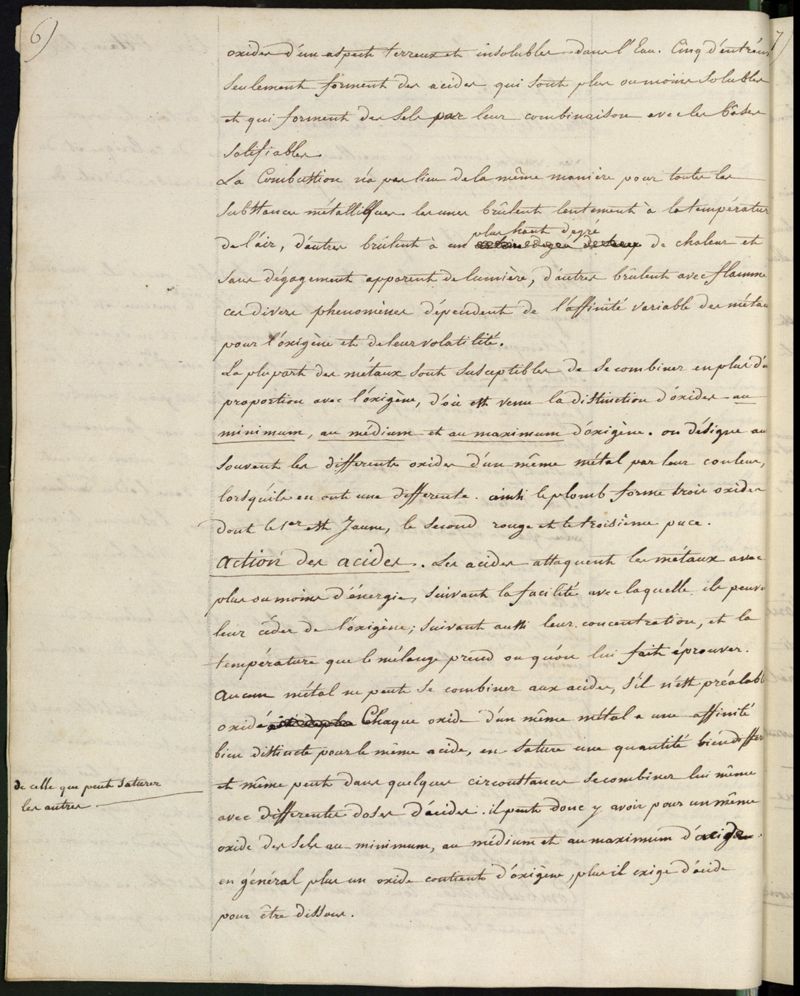 6)
oxides d'un aspect terreux et insolubles dans l'Eau. Cinq d'entr'eux
seulement forment des acides qui sont plus ou moins solubles
et qui forment des Sels par leur combinaison avec les bâses
salifiables
La Combustion n'a pas lieu de la même manière pour toutes les
substances métalliques. les unes brûlent lentement à la températur
plus haut dégré
de l'air, d'autres brûlent à un de chaleur et
sans dégagement apparent de lumière, d'autres brûlent avec flamme
ces divers phenomènes dépendent de l'affinité variable des métau
pour l'oxigène et de leur volatilité.
La plupart des métaux sont susceptibles de se combiner en plus d'u
proportion avec l'oxigène, d'où est venu la distinction d'oxides au
minimum, au médium et au maximum d'oxigène. on désigne au
souvent les differents oxides d'un même métal par leur couleur,
lorsqu'ils en ont une differente. ainsi le plomb forme trois oxides
dont le 1er est Jaune, le second rouge et le troisième puce.
action des acides.. Les acides attaquent les métaux avec
plus ou moins d'énergie, suivant la facilité avec laquelle ils peuve
leur céder de l'oxigène; suivant aussi leur concentration, et la
température que le mélange prend ou qu'on lui fait éprouver.
aucun métal ne peut se combiner aux acides, s'il n'est préalabl
oxidé Chaque oxide d'un même métal a une affinité
bien distincte pour le même acide, en sature une quantité bien differ
de celle que peut saturer
les autres
et même peut dans quelques circonstances se combiner lui même
avec differentes doses d'acides. il peut donc y avoir pour un même
oxide des Sels au minimum, au médium et au maximum d'acide.
en général plus un oxide contient d'oxigène, plus il exige d'acide
pour être dissous.
7)